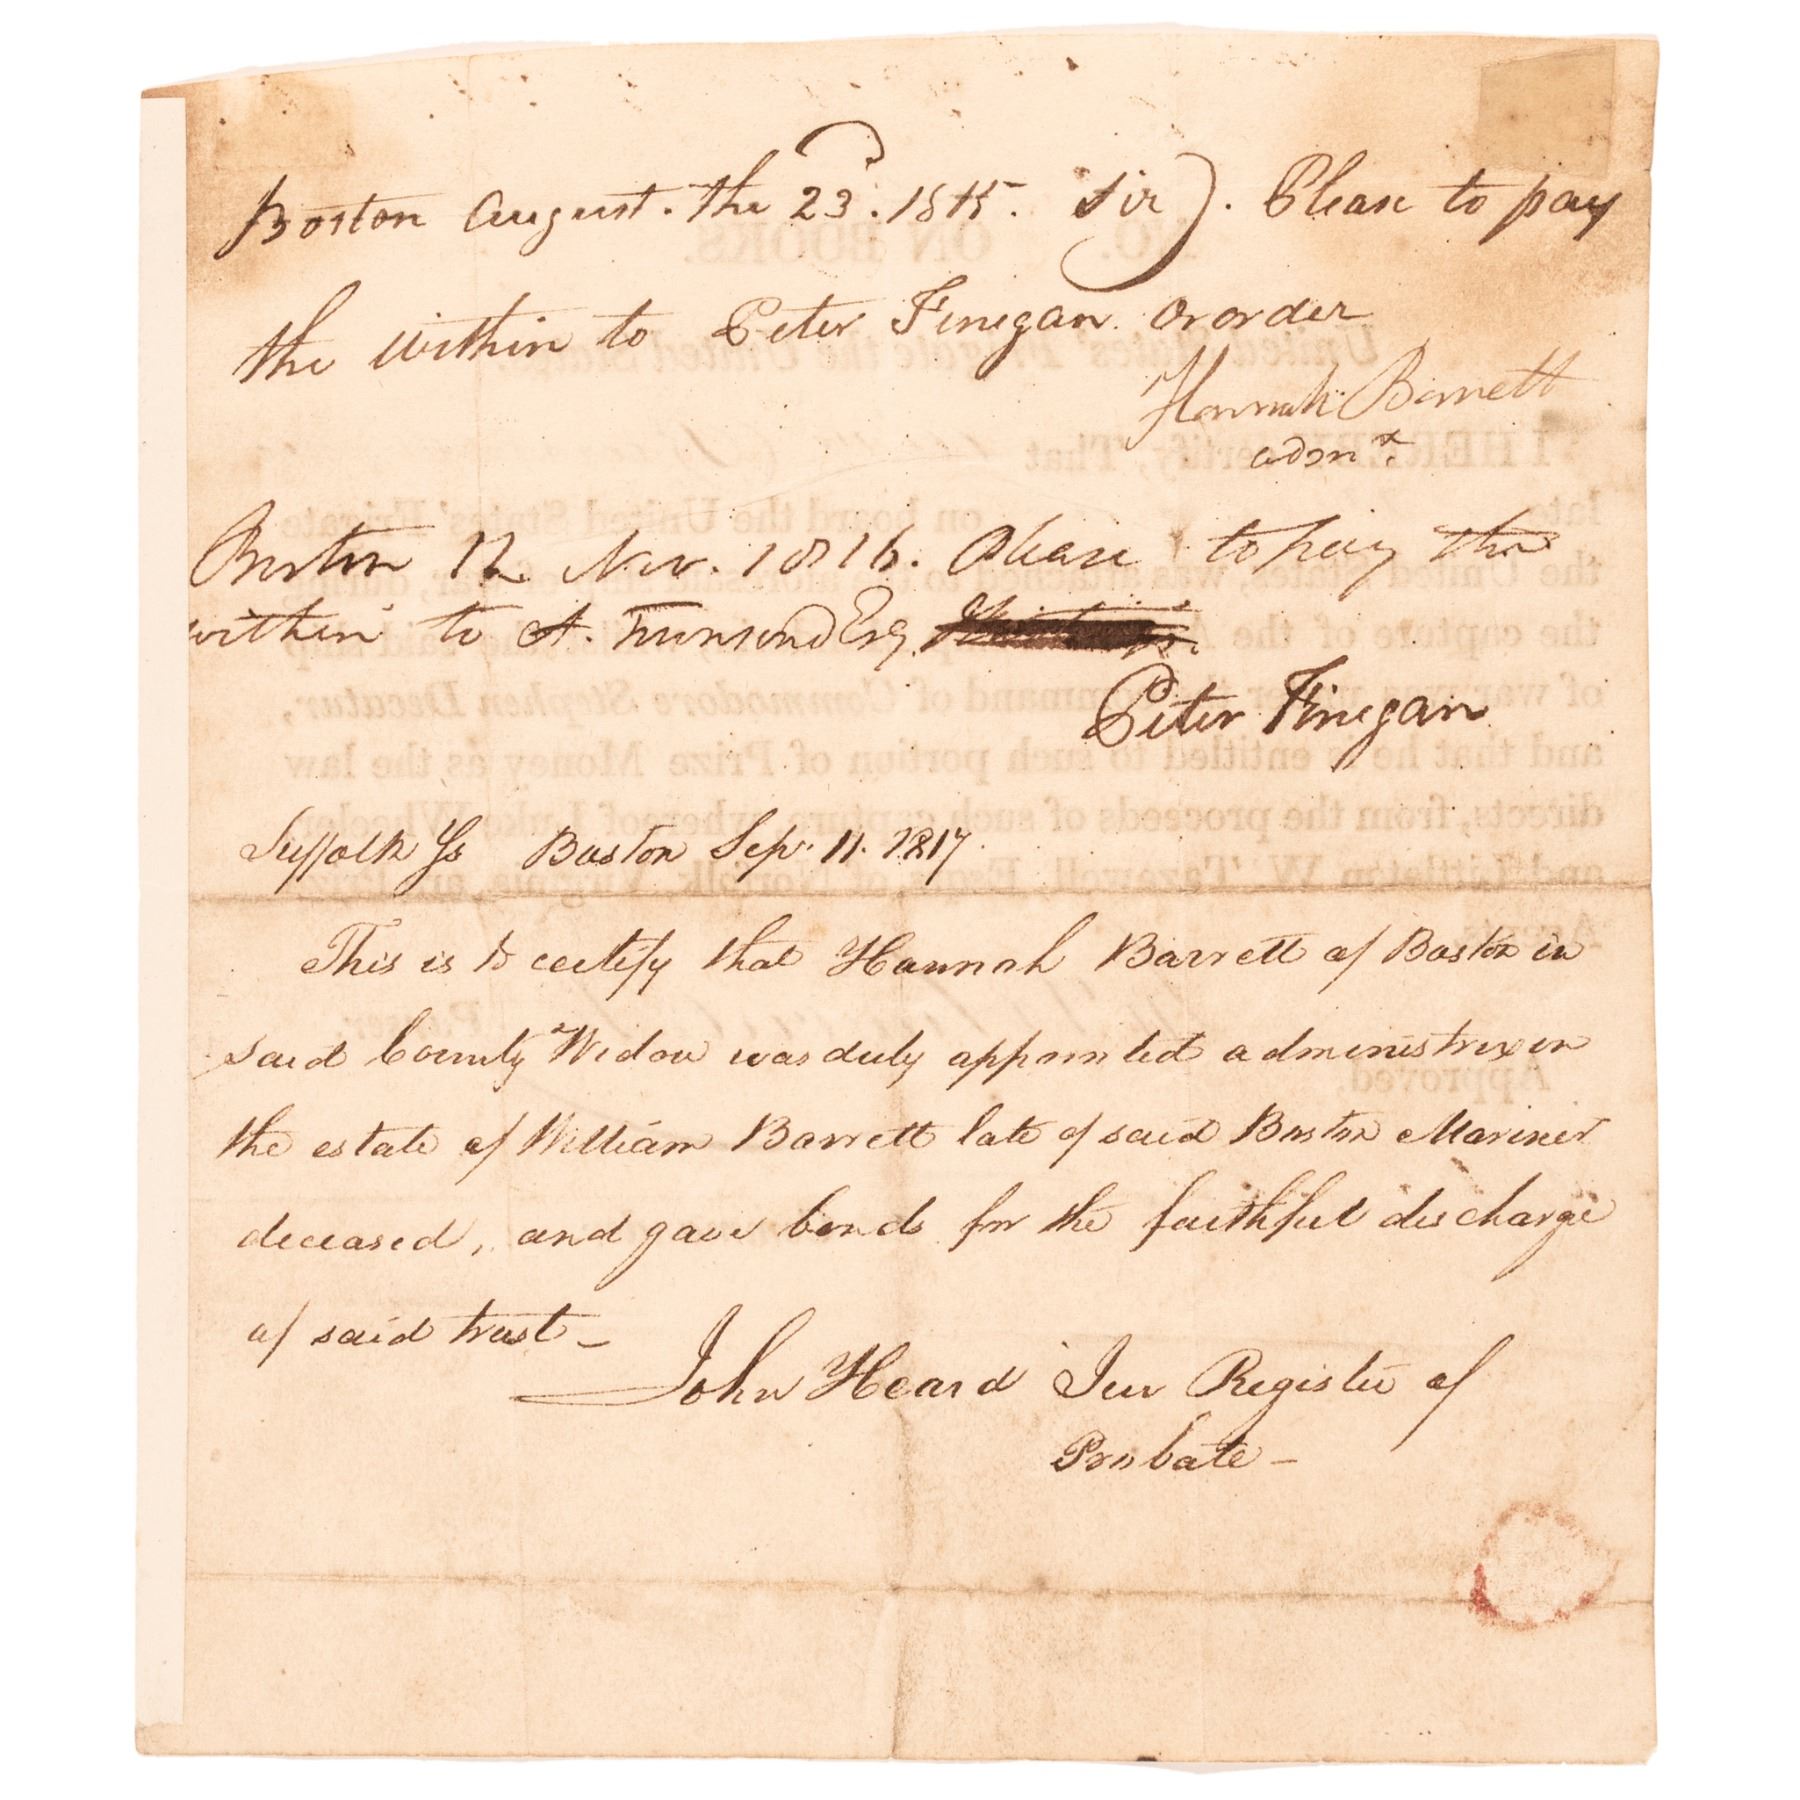 Boston August. the 23d. 1815. Sir). Please to pay
the within to Peter Finegan. or order
Hannah Barrett
admx.
Boston 12 Nov. 1816. Please to pay the
within to A. Townsend Esq.
Peter Finegan
Suffolk Ss Boston Sep. 11. 1817.
This is to certify that Hannah Barrett of Boston in
said County Widow was duly appointed administrix on
the estate of William Barrett late of said Boston Mariner
deceased, and gave bonds for the faithful discharge
of said trust –
John Heard Jun Register of
Probate –